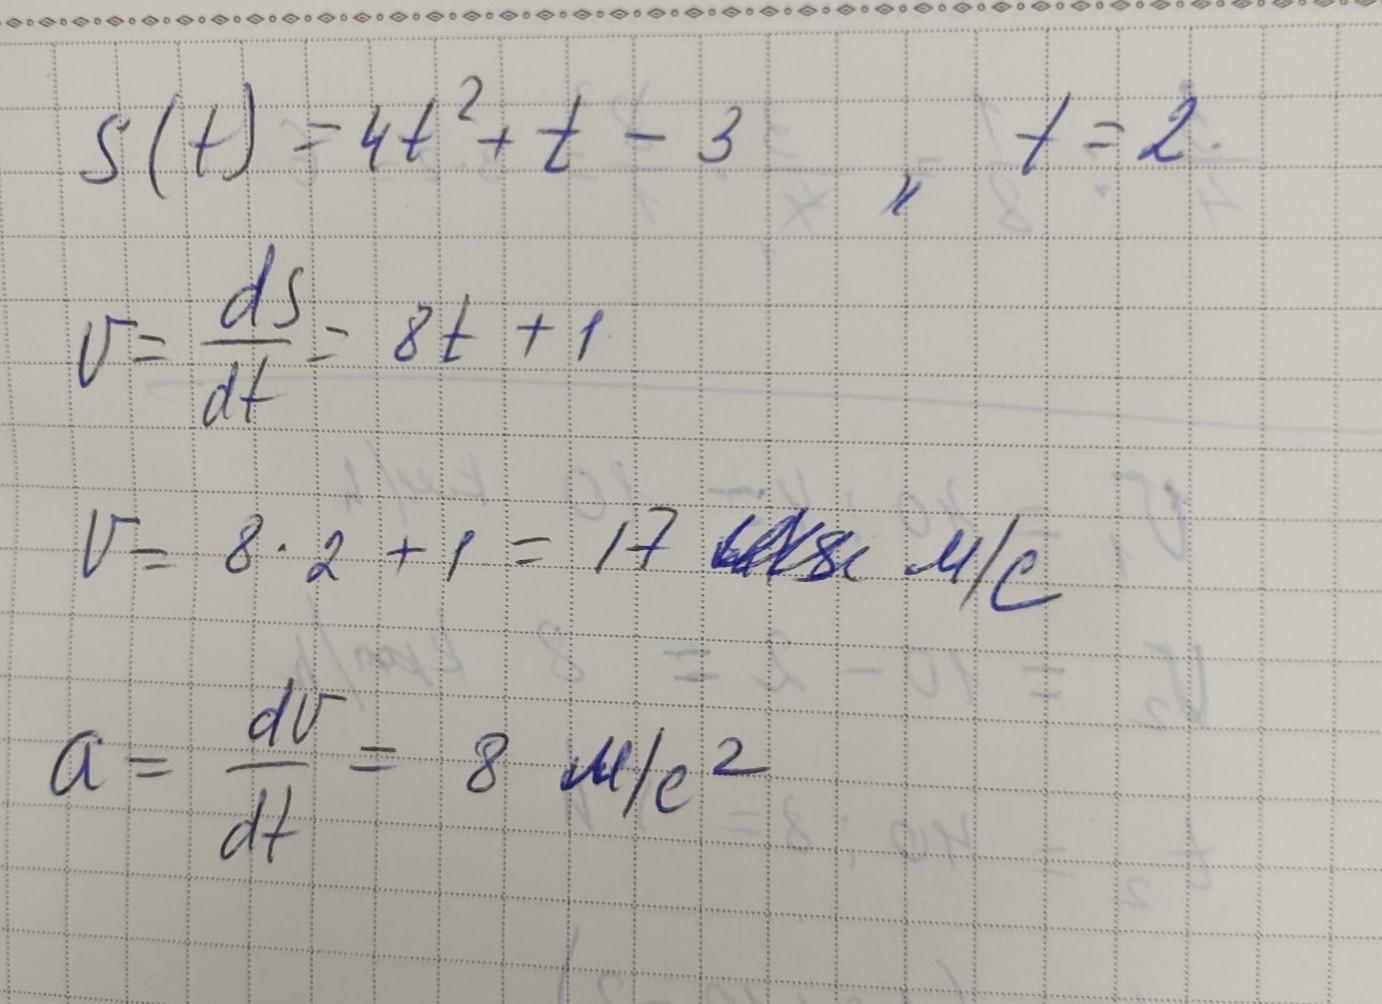 s(t) = 4t² + t - 3 , t = 2.
v = ds/dt = 8t + 1
v = 8 · 2 + 1 = 17 м/с
a = dv/dt = 8 м/с²